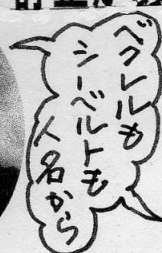 ベクレルも
シーベルトも
人名から